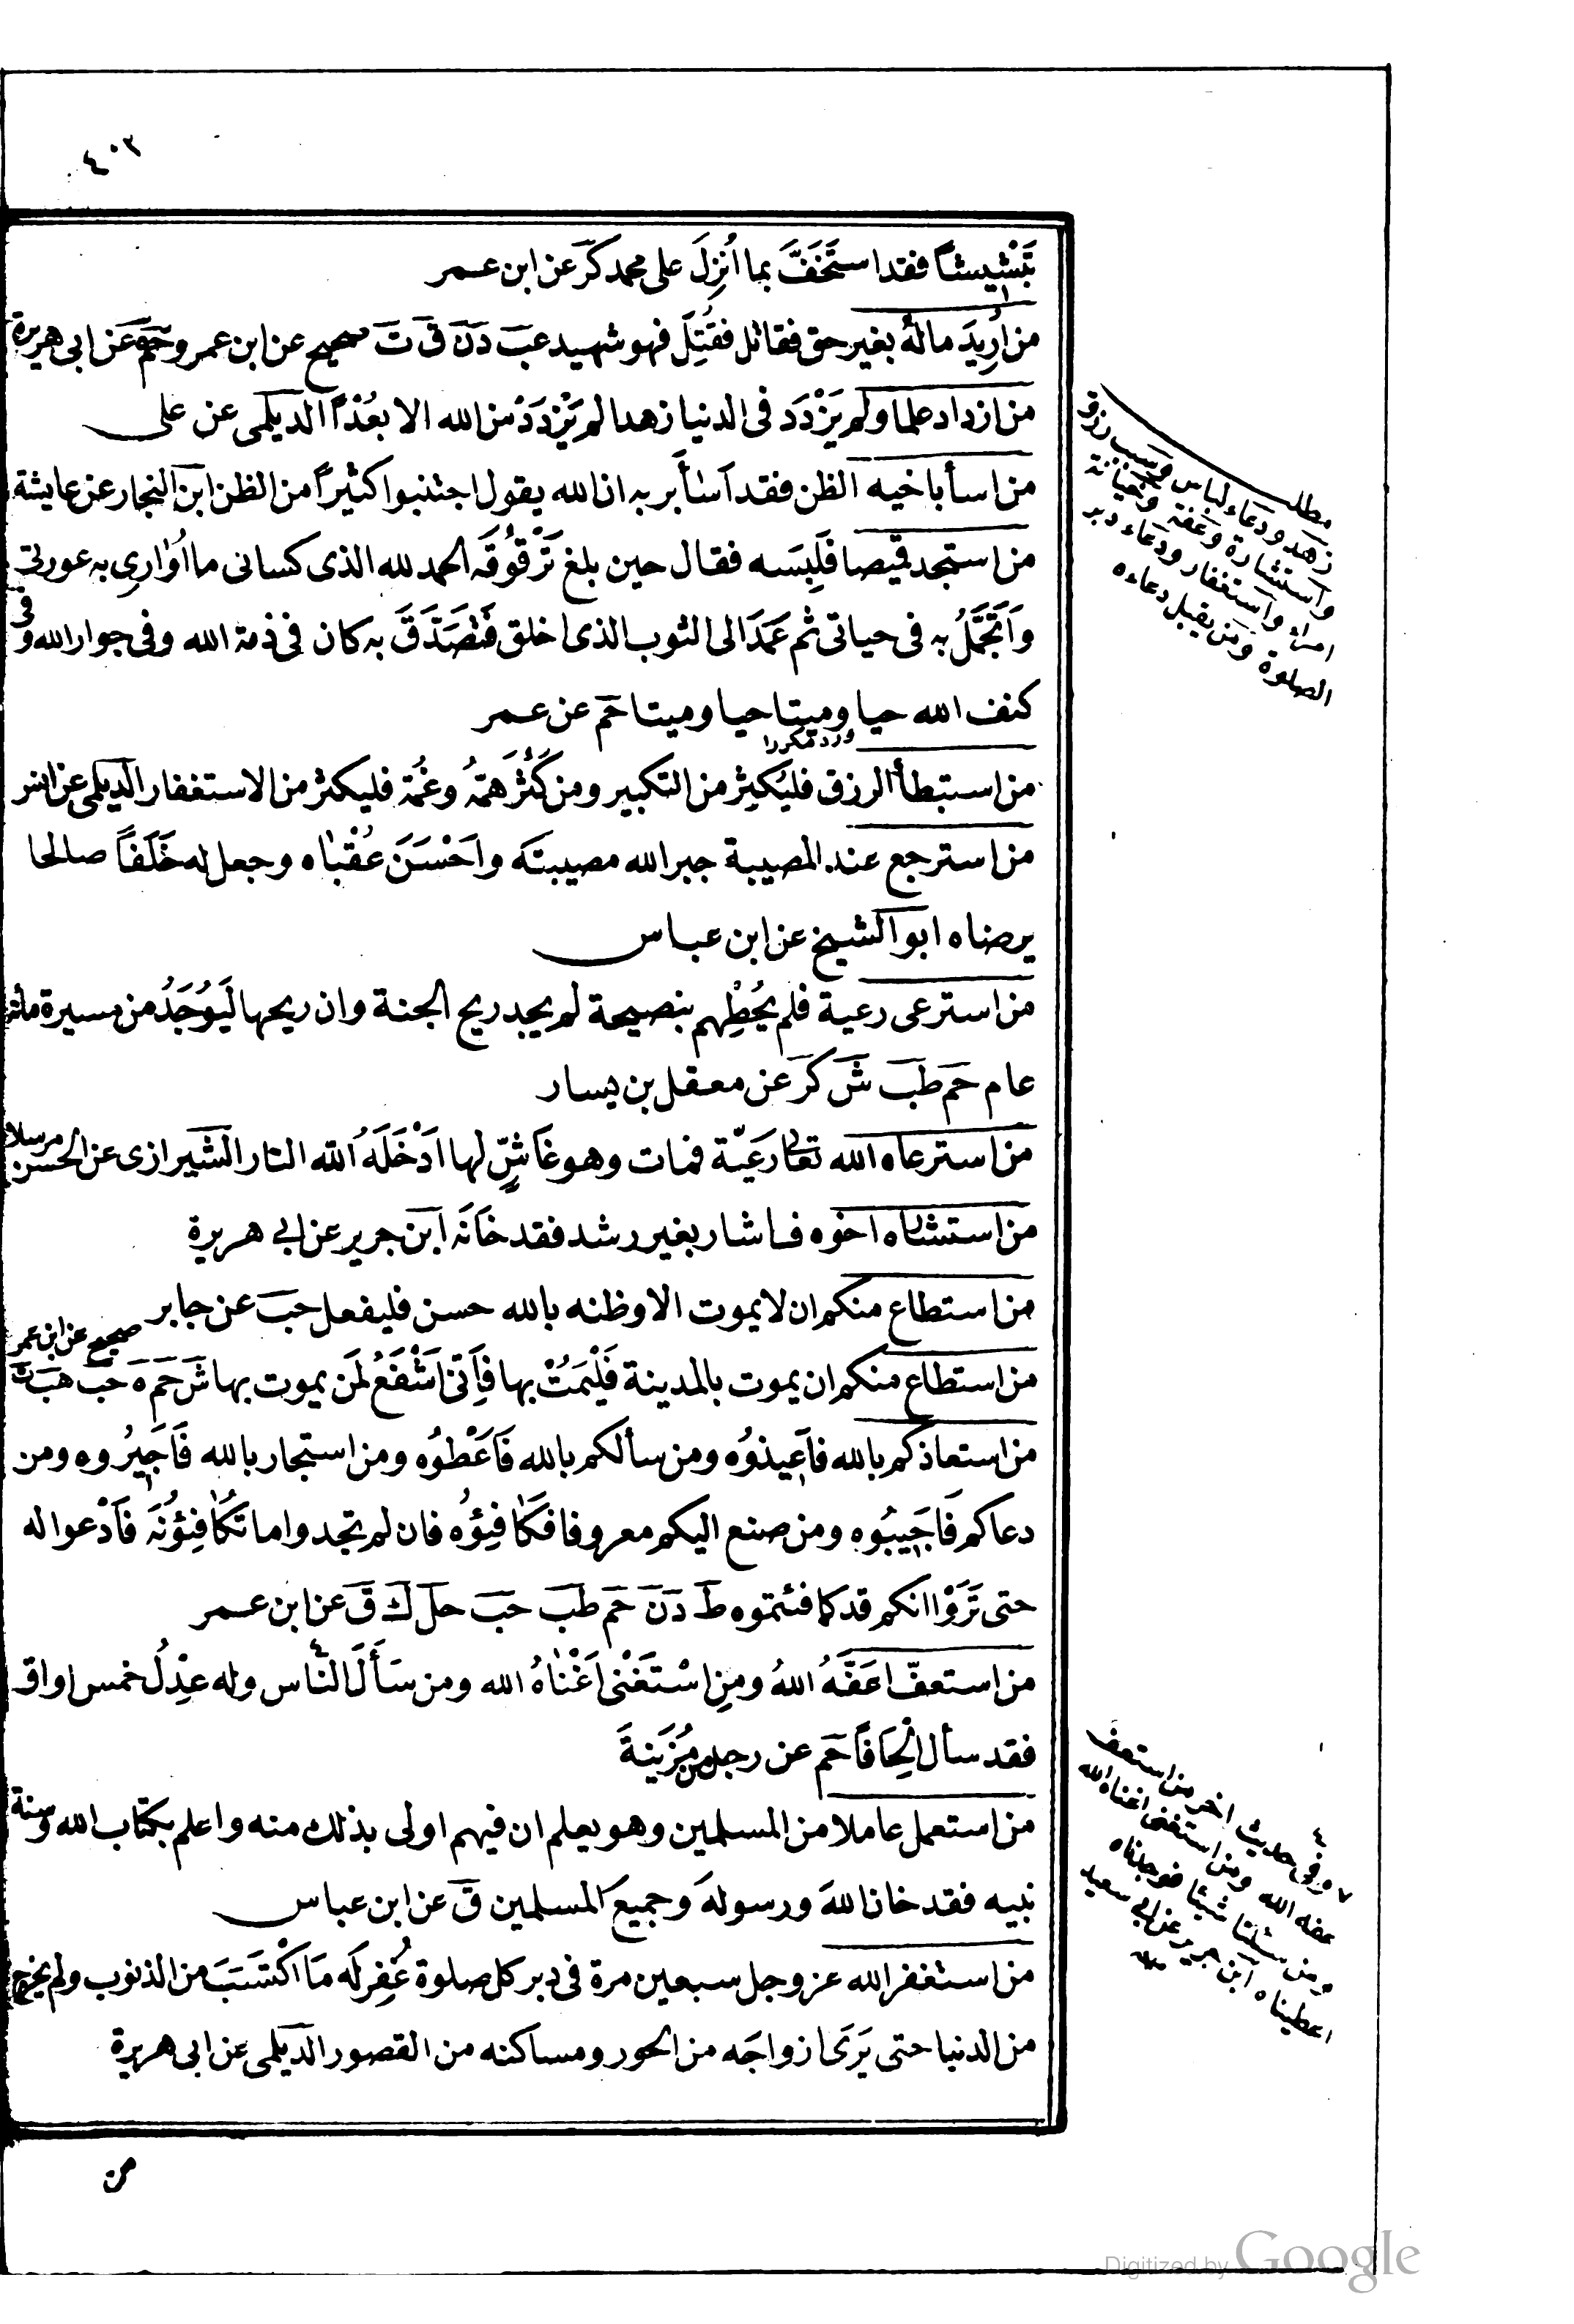 ٤٠٣
تَبْشِيشًا فقد استَخَفَّ بما اُنْزِلَ على محمد كَرَ عن ابن عمر
من اُرِيدَ مالُهُ بغير حق فقاتل فقُتِلَ فهو شهيد عبَ دَنَ قَ تَ صحيح عن ابن عمرو وحَمَ عن ابى هريرة
من ازداد علما ولم يَزْدَد فى الدنيا زهدا لم يَزْدَدْ من الله الا بعُدْاً الديلمى عن على
من اسأ باخيه الظن فقد اَسْأَ بربه ان الله يقول اجتنبوا كثيراً من الظن ابن النجار عن عايشة
من استجد قميصا فَلَبِسَه فقال حين بلغ تَرْقُوَتَه الحمد لله الذى كسانى ما اُوَارِى به عورتى
وَاَتَجَمَّلُ به فى حياتى ثم عَمَدَ الى الثوب الذى اخلق فَتَصَدَّقَ به كان فى ذمة الله وفى جوار الله وفى
كنف الله حيا وميتا حيا وميتا حَم عن عمر
ورد مكررا
من استبطأ الرزق فليُكثِر من التكبير ومن كَثُرَ هَمُّهُ وغمُّه فليكثر من الاستغفار الديلمى عن انس
من استرجع عند المصيبة جبر الله مصيبتَه واَحْسَنَ عُقْبَاه وجعل له خَلَفاً صالحا
يرضاه ابوالشيخ عن ابن عباس
من استرعى رعية فلم يحُطْهم بنصيحة لم يجد ريح الجنة وان ريحها لَيُوجَدُ من مسيرة مأة
عام حَم طَبَ شَ كَرَ عن معقل بن يسار
من استرعاه الله تعالى رَعَيّة فمات وهو غَاشٌّ لها اَدْخَلَهُ اللّه النار الشيرازى عن الحسن مرسلا
من استشاره اخوه فاشار بغير رشد فقد خَانَه ابن جرير عن ابي هريرة
من استطاع منكم ان لا يموت الا وظنه بالله حسن فليفعل حبَ عن جابر
من استطاع منكم ان يموت بالمدينة فَلْيَمُتْ بها فَاِنّى اَشْفَعُ لمَن يموت بها شَ حَمَ هَ حَبَ هَبَ تَ صحيح عن ابن عمر
من استعاذكم بالله فاَعِيذوُه ومن سألكم بالله فَاَعْطوُه ومن استجار بالله فَاَجِيرُوه ومن
دعاكم فَاَجِيبُوه ومن صنع اليكم معروفا فكَافِئوُه فان لم تجدوا ما تُكَافِئوُنَه فَاَدْعوا له
حتى تَرَوْا انكم قد كافئتموه طَ دَنَ حَم طبَ حَبَ حلَ كَ قَ عن ابن عمر
من استعفّ اعَفَّهُ اللهُ ومنِ اسْتَغْنَى اَغْنَاهُ الله ومن سَأَلَ النّاس ٤ وله عِدْلُ خمس اواق
فقد سأل اِلْحَافًا حَم عن رجل من مُزَينةَ
من استعمل عاملا من المسلمين وهو يعلم ان فيهم اولى بذلك منه واعلم بكتاب الله وسنة
نبيه فقد خان اللهَ ورسولهَ وجميعَ المسلمين قَ عن ابن عباس
من استغفر الله عز وجل سبعين مرة فى دبر كل صلوة غُفِرَ له مَا اكْتَسَبَ من الذنوب ولم يخرج
من الدنيا حتى يَرَى ازواجَه من الحور ومساكنه من القصور الديلمى عن ابى هريرة
من
مطلب زهد ودعاء لباس وسبب رزق
واستشارة وعفة وخيانة
امراء واستغفار ودعاء دبر
الصلوة ومن يقبل دعاءه
٤
وفى حديث اخر من استعف
عفه الله ومن استغنى اغناه الله
ومن سئلنا شيئا فوجدناه
اعطيناه ابن جرير عن ابى سعيد
Digitized by Google